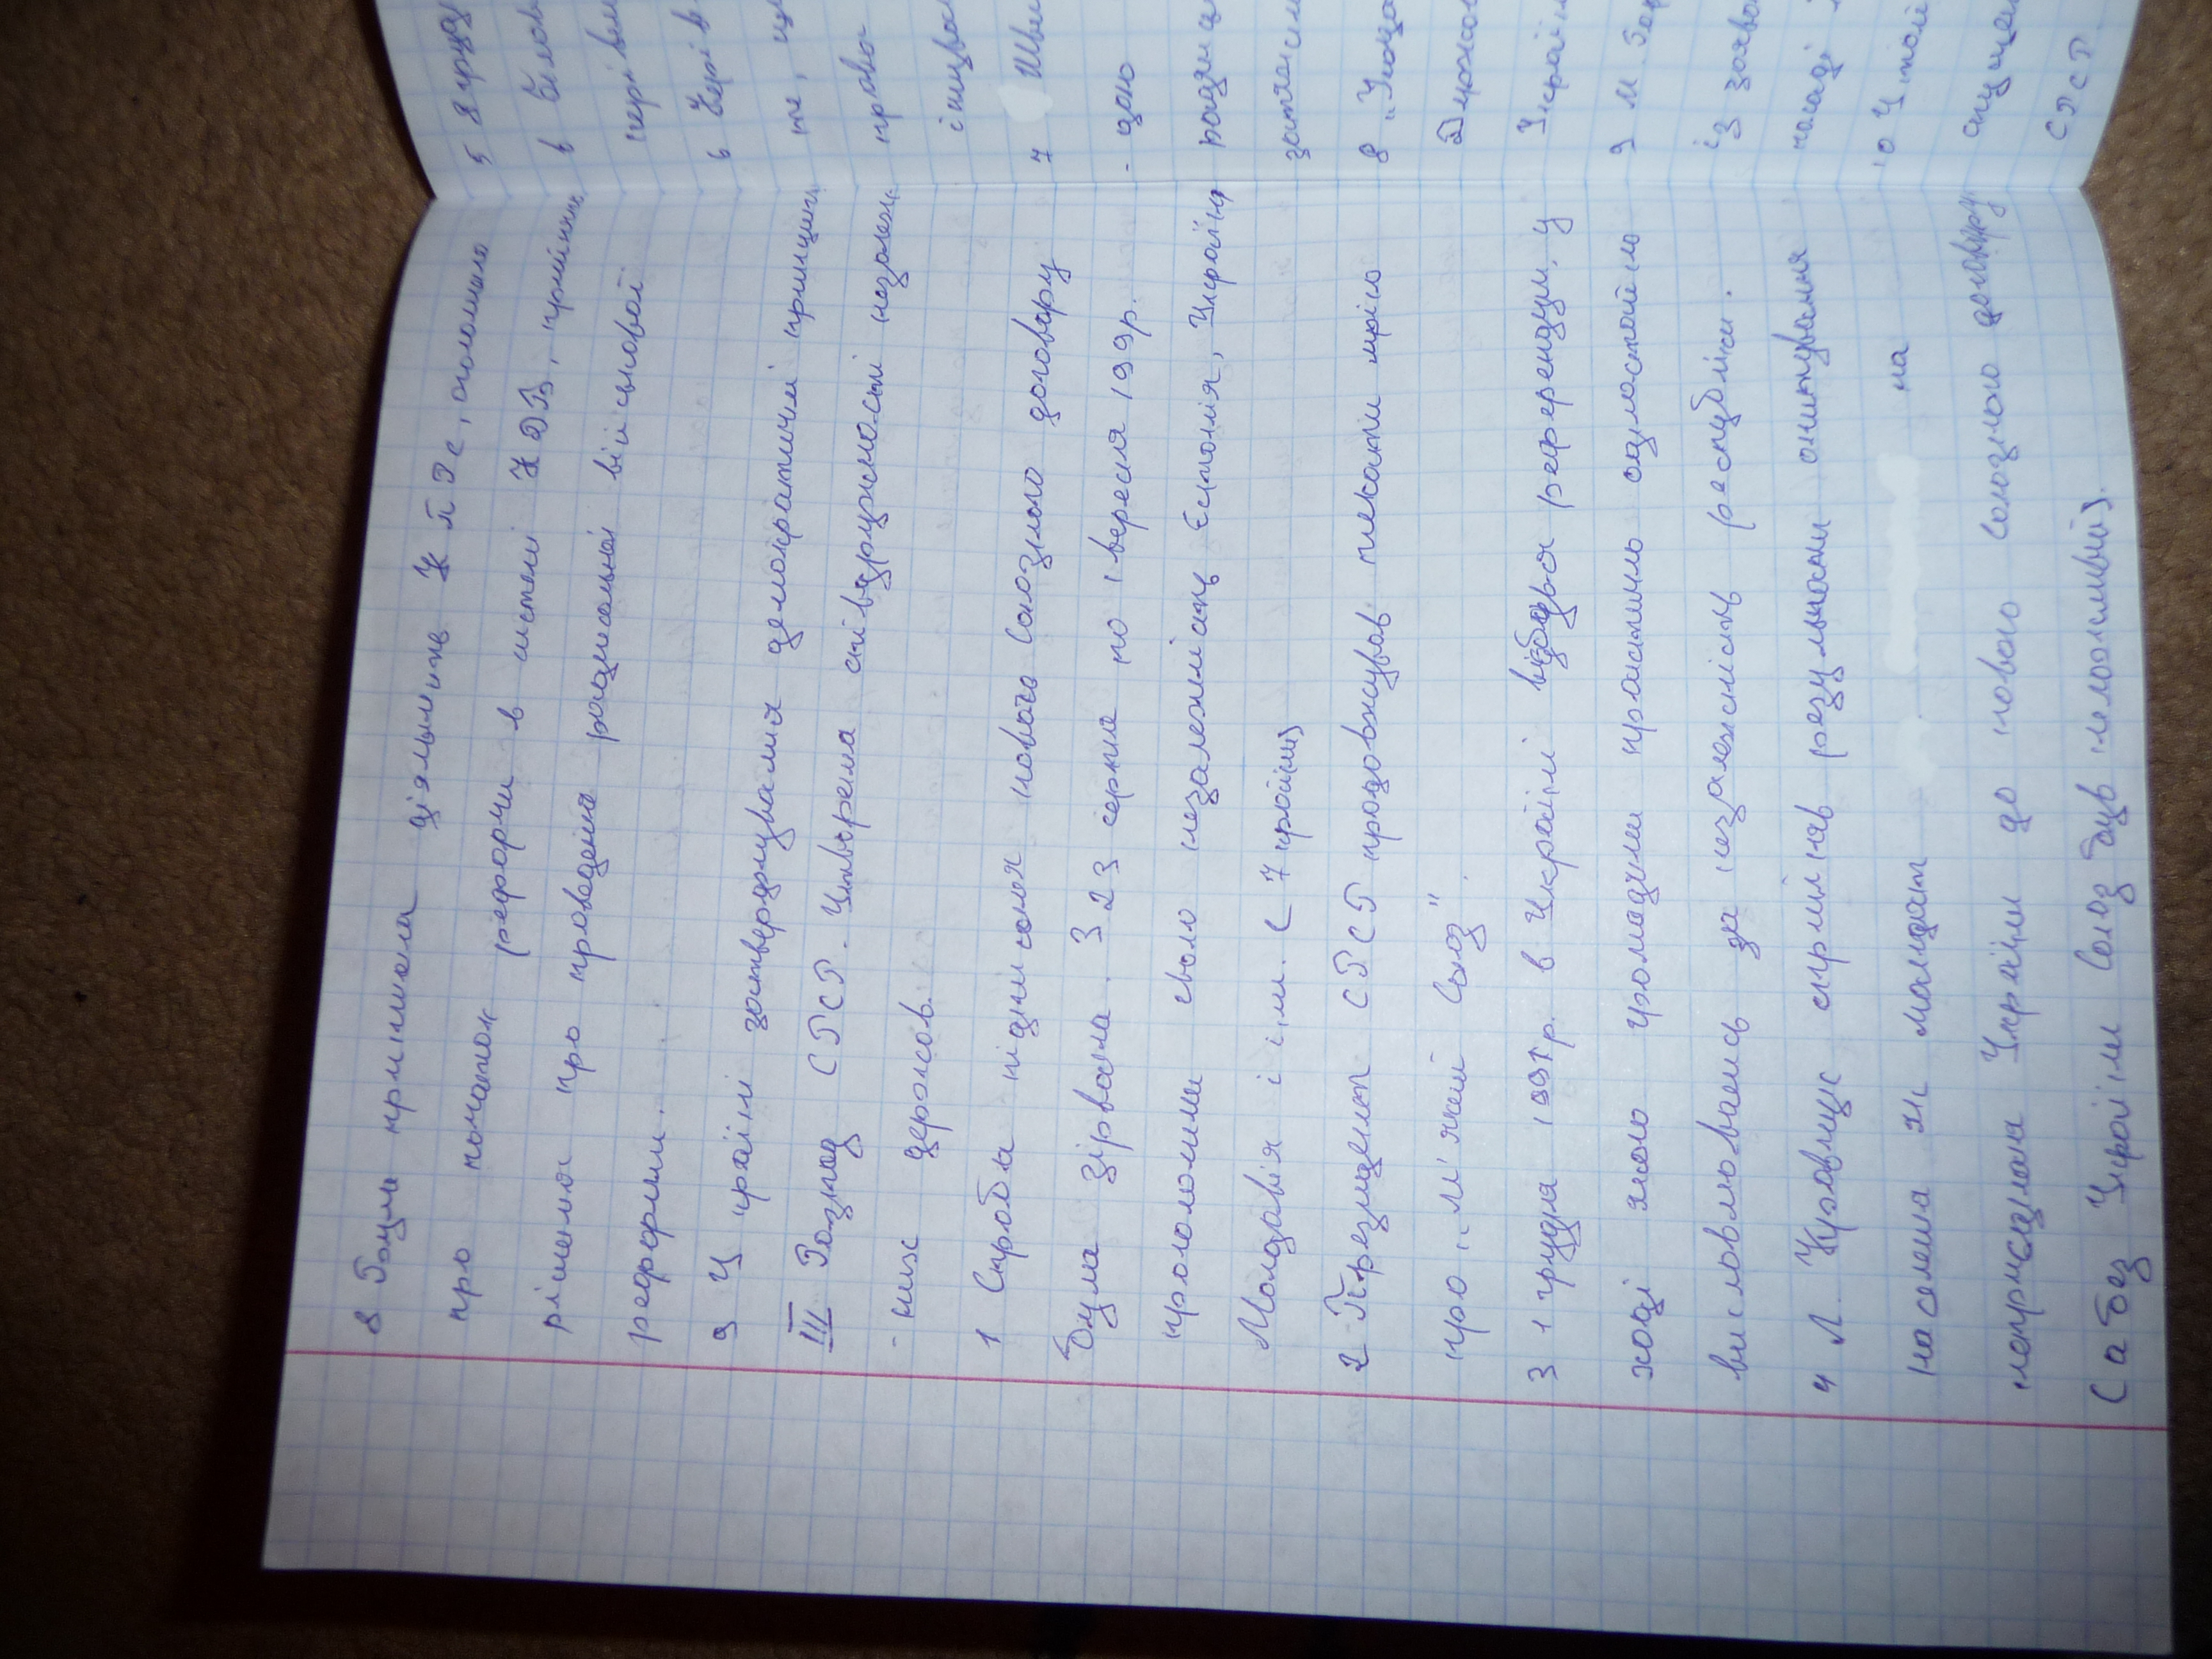 8 Була припинена діяльність КПРС, оголошено
про початок реформи в системі КДБ, прийнято
рішення про проведення радикальної військової
реформи.
9 У країні затверджування демократичні принципи
III Розпад СРСР. Утворена співдружності незалеж-
- них держав.
1 Спроба підписання нового союзного договору
була зірвана. З 23 серпня по 1 вересня 199р.
проголошими свою незалежність Естонія, Україна
Молдавія і ін. (7 країн)
2 Президент СРСР продовжував плекати мрію
про „м'який Союз".
3 1 грудня 1991р. в Україні відбувся референдум, у
ході якого громадяни країни одностайно
висловлювались за незалежність республіки.
4 Л. Кравчук сприйняв результати опитування
населена як мандат на
неприєднана України до нового союзного договору
(а без України Союз був неможливий).
5 8 груд
в Білов
керівни
6 Керів
те, що
право
існуван
7 Шви
- цою
радян
затягн
8 „Угода
Держав
Україн
9 М. Гор
із заяво
посаді
10 У
СРСР.